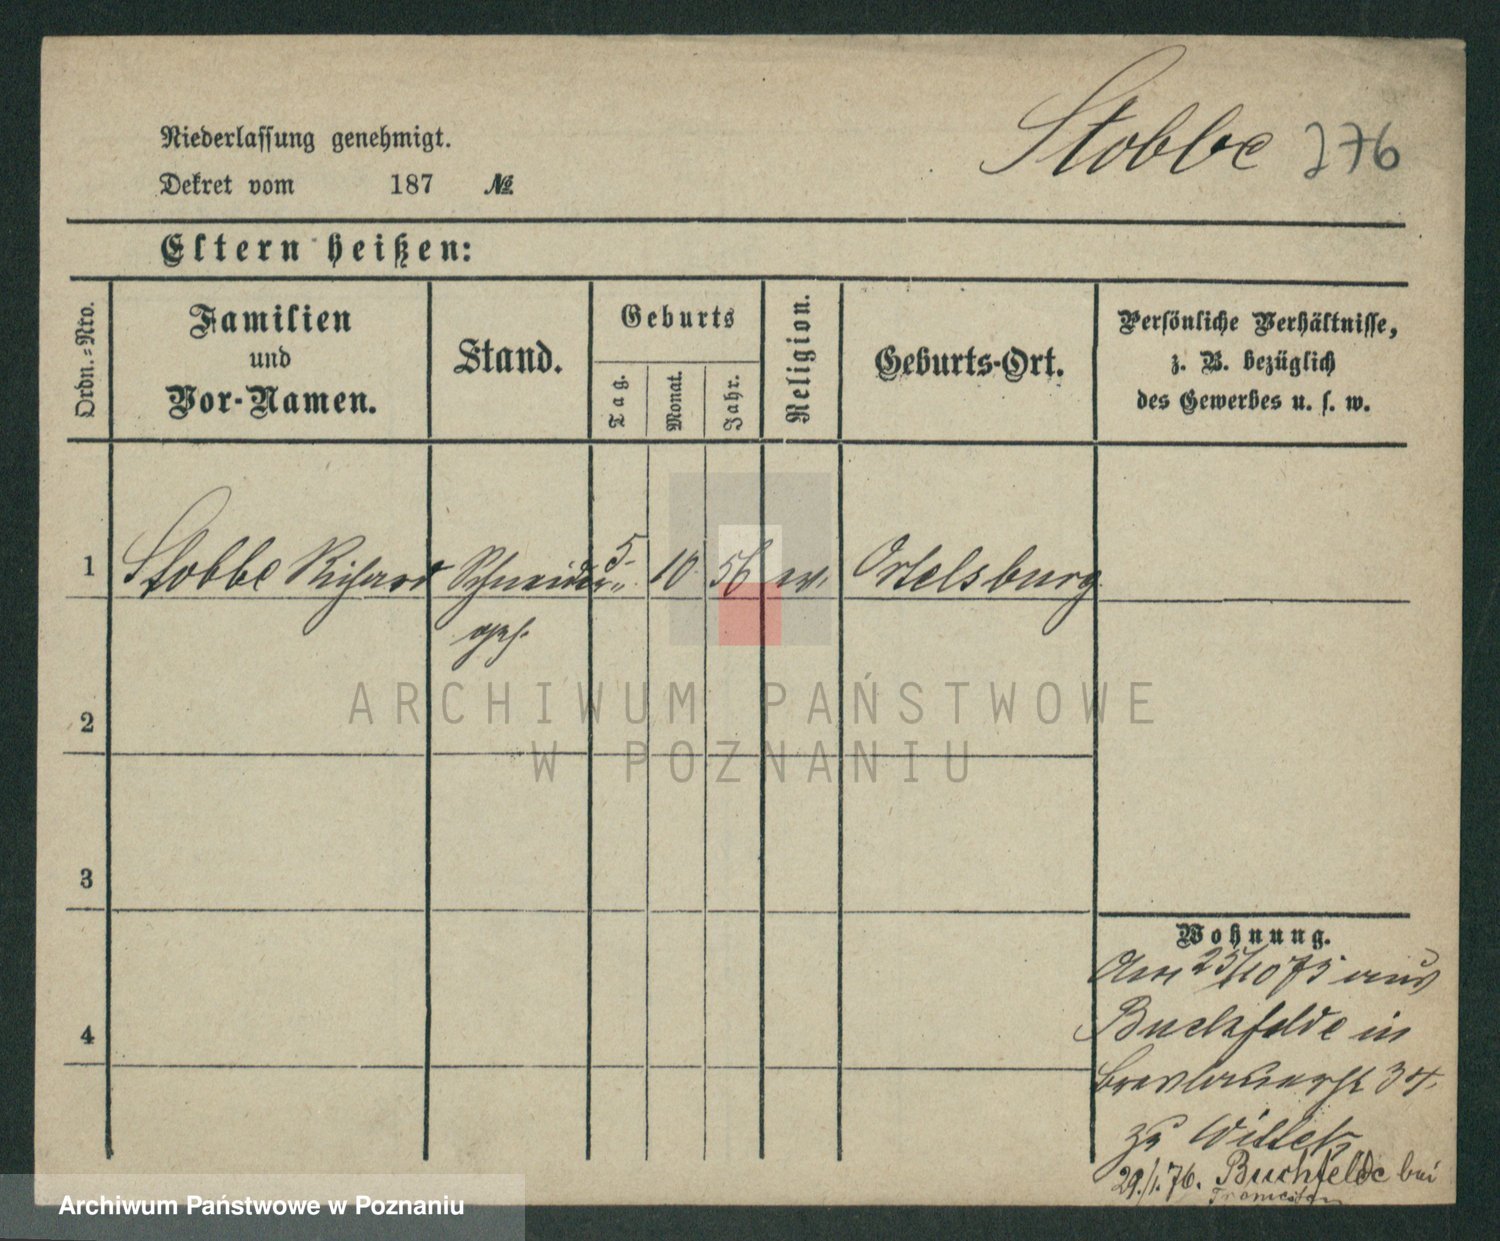 Stobbe 276
Niederlassung genehmigt.
Dekret vom 187 №
Eltern heißen:
Ordn.=Nro.
Familien
und
Vor-Namen.
Stand.
Geburts
Tag.
Monat.
Jahr.
Religion.
Geburts-Ort.
Persönliche Verhältnisse,
z. B. bezüglich
des Gewerbes u. s. w.
1 Stobbe Richard Schneider 5. 10 56 ev. Ortelsburg
ges.
2
3
4
Wohnung.
Am 25/10 75 aus
Buchfelde in
Breslauerst 34.
zu Wittek
29./1. 76. Buchfelde bei
ARCHIWUM PAŃSTWOWE
W POZNANIU
Archiwum Państwowe w Poznaniu